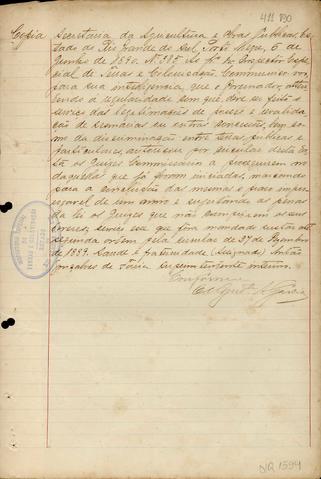 411 190
Copia Secretaria da Agricultura e Obras Publicas, Es-
tado do Rio Grande do Sul, Porto Alegre, 6 de
Junho de 1890. Nº 385. Ao Snr. Inspector Espe-
cial de Terras e Colonisação. Communico-vos
para sua intelligencia, que o Governador, atten-
dendo a regularidade com que deve ser feito o
serviço das legitimações de posses e revalida-
ção de sesmarias ou outras concessões, bem co-
mo da discriminação entre terras publicas e
particulares, autorisou por circular desta da-
ta os Juizes Commissarios a proseguirem no
daquellas que já foram iniciadas, marcando
para a conclusão das mesmas o prazo impro-
rogavel de um anno e sujeitando as penas
da lei os Juizes que não cumprirem os seus
deveres, serviço esse que fôra mandado sustar até
segunda ordem pela circular de 27 de Dezembro
de 1889. Saude e fraternidade (Assignado)
Gonçalves de Superintendente interino.
Conforme
Garcia
DQ 1594